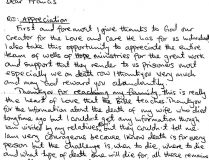 Dear Francis
RE: Appreciation
First and foremost I give thanks to God our
Creator for the Love and Care He has for us
I also take this opportunity to appreciate the entire
team of Hope ministries for the great work
and support that they render to us prisoners most
especially we on death row I thank you very much
and may God reward you abundantly
Thank you for reaching my family, this is really
the heart of love that the Bible teaches. Thank you
for the information about the death of my wife, who died
long time ago but I couldn't get any information though
I'm visited by my relatives, but they couldn't tell me
I am very courageous because I know death is for every
person but the challenge is, when to die, where to die
and what type of death she will die for, all these remains